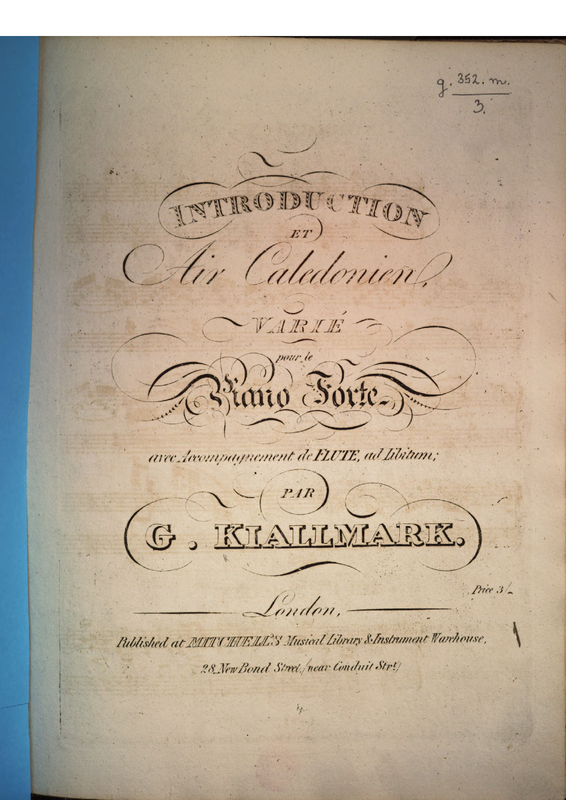 g. 352. m.
3.
INTRODUCTION
ET
Air Caledonien,
VARIÉ
pour le
Piano Forte
avec Accompagnement de FLUTE, ad Libitum;
PAR
G. KIALLMARK.
Price 3/-
London,
Published at MITCHELL'S Musical Library & Instrument Warehouse,
28, New Bond Street, (near Conduit Strt)